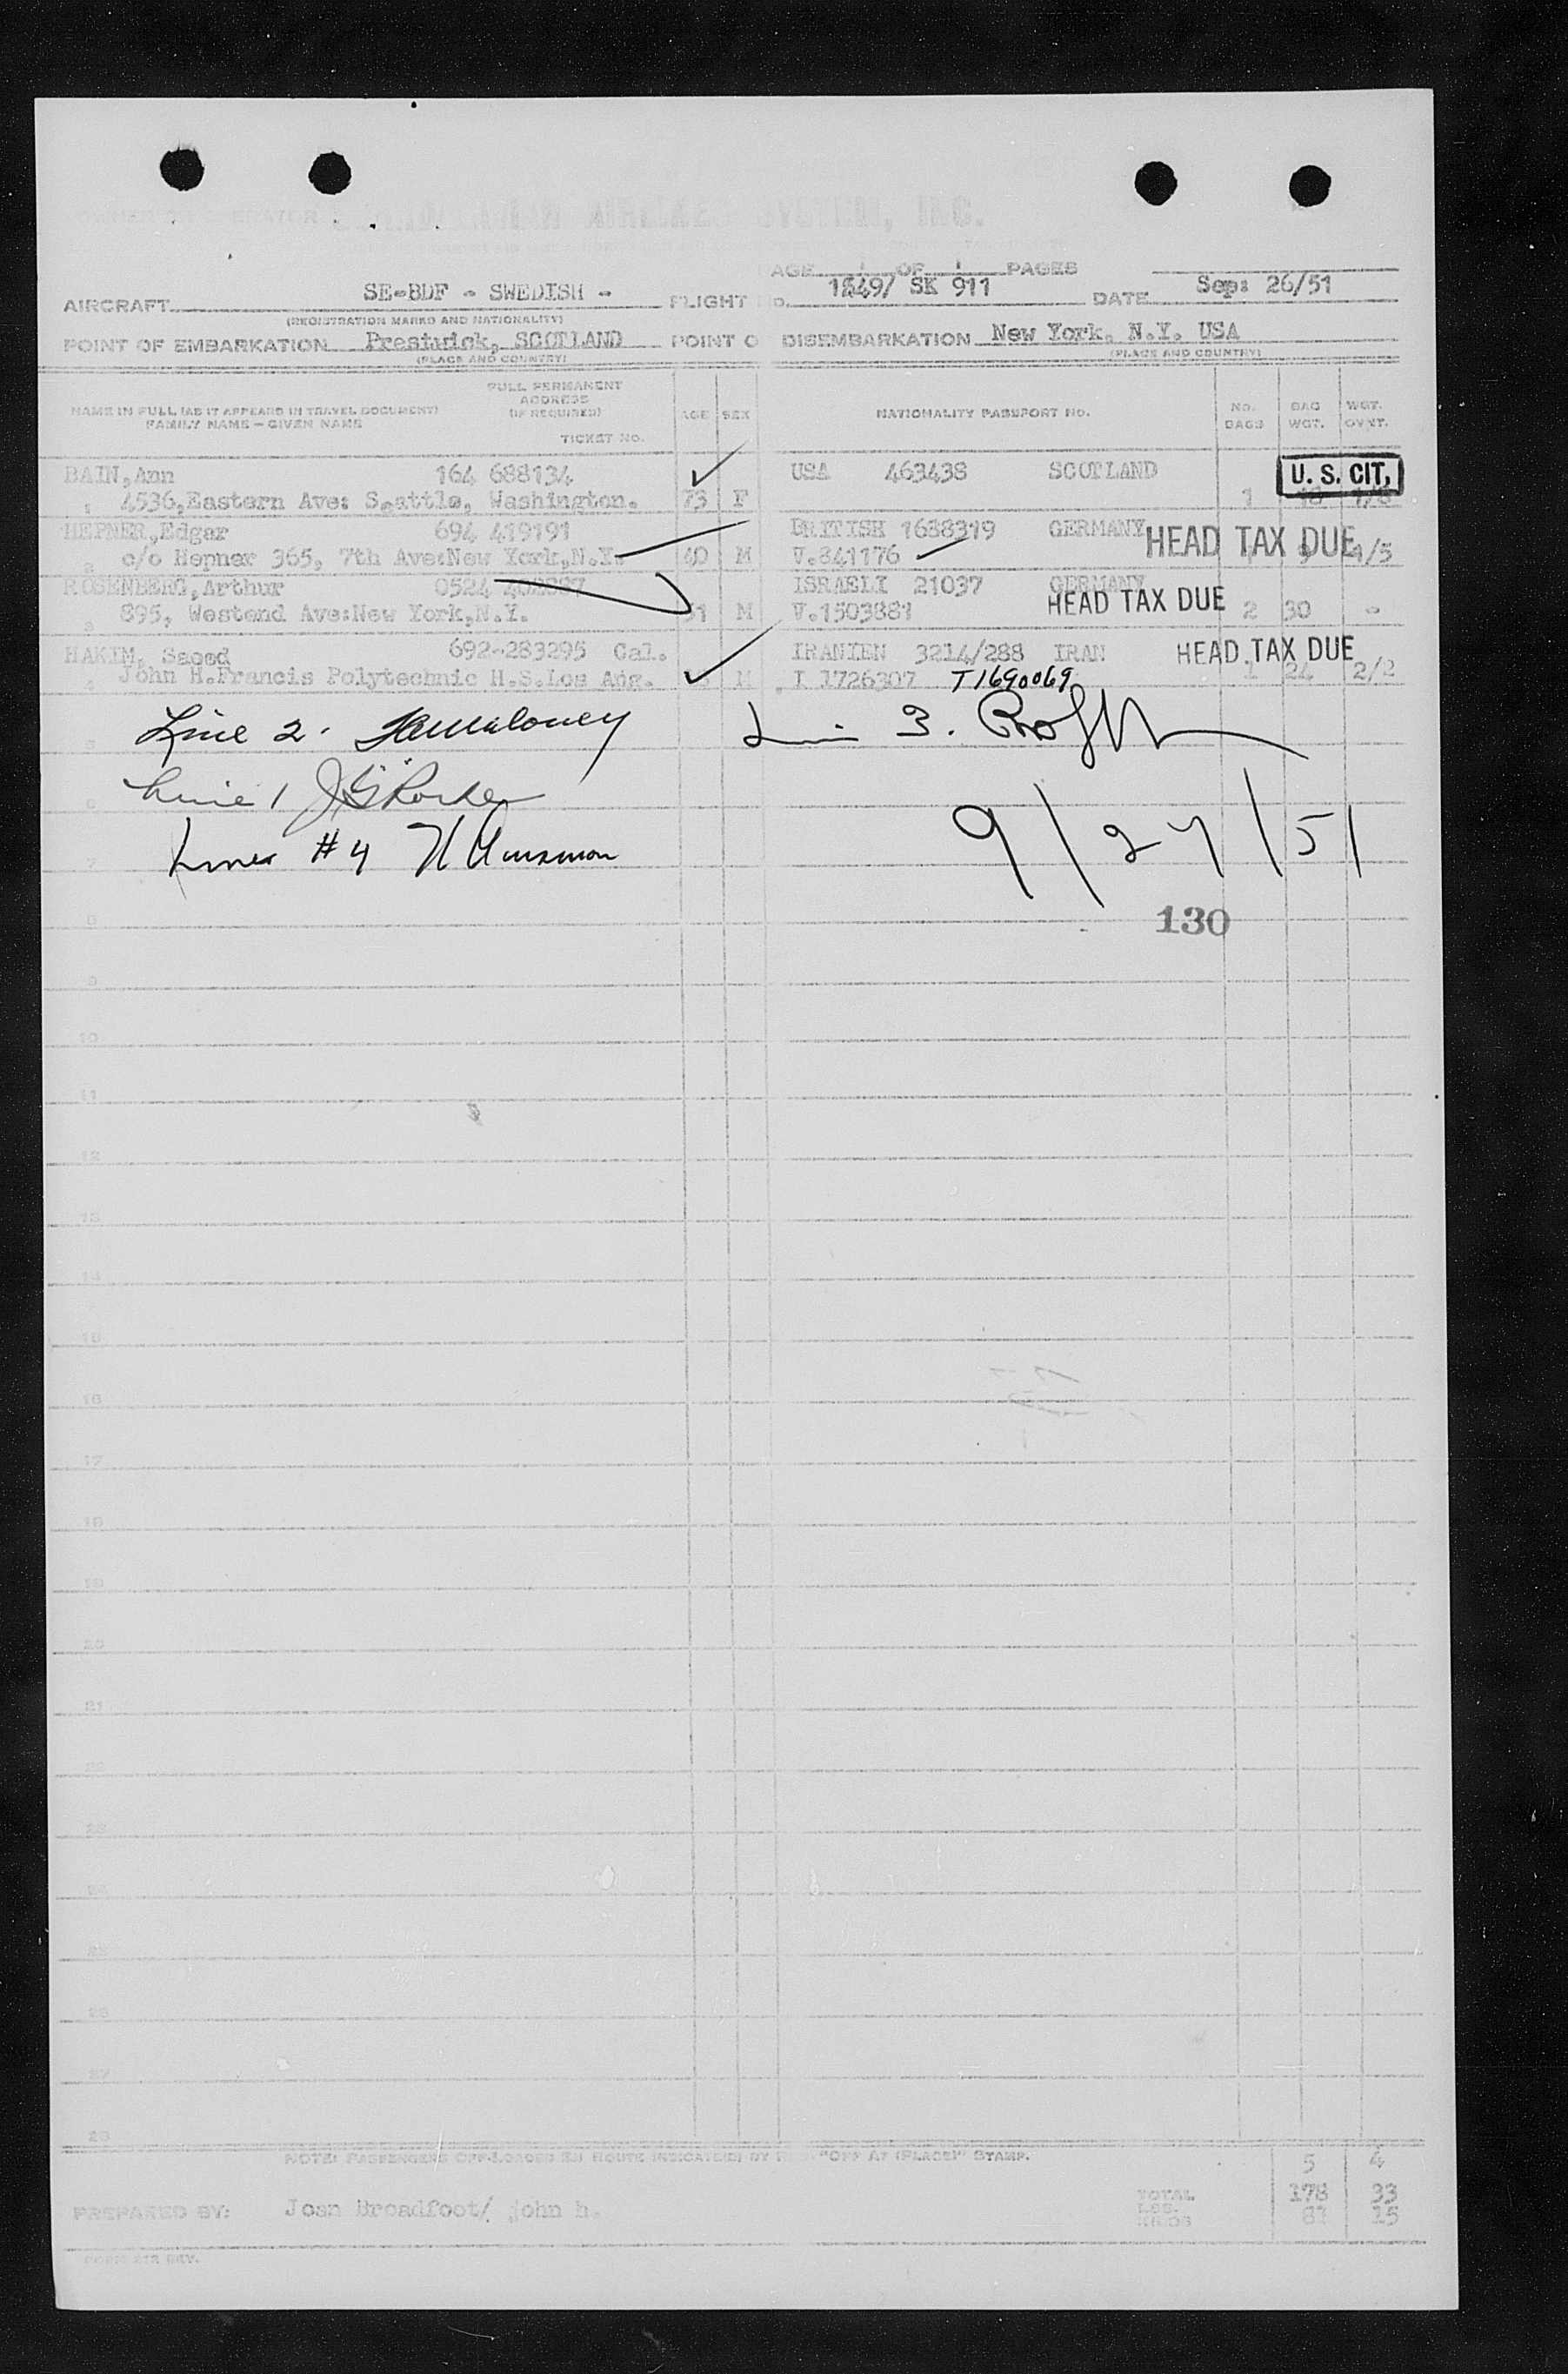 OWNER OR OPERATOR SCANDINAVIAN AIRLINES SYSTEM, INC.
PAGE 1 OF 1 PAGES
AIRCRAFT SE-BDF - SWEDISH - FLIGHT No. 1849/ SK 911 DATE Sep: 26/51
(REGISTRATION MARKS AND NATIONALITY)
POINT OF EMBARKATION Prestwick, SCOTLAND POINT O DISEMBARKATION New York, N.Y. USA
(PLACE AND COUNTRY) (PLACE AND COUNTRY)
NAME IN FULL (AS IT APPEARS IN TRAVEL DOCUMENT)
FAMILY NAME – GIVEN NAME
FULL PERMANENT
ADDRESS
(IF REQUIRED)
TICKET NO.
AGE SEX NATIONALITY PASSPORT NO. NO. BAGS BAG WGT. WGT. OVWT.
BAIN,Ann 164 688134 USA 463438 SCOTLAND U. S. CIT,
1 4536,Eastern Ave: Seattle, Washington. 73 F 1
HEPNER,Edgar 694 419191 BRITISH 1638319 GERMANY HEAD TAX DUE
2 c/o Hepner 365, 7th Ave:New York,N.Y. 40 M V.841176 4/5
ROSENBERG,Arthur 0524 ISRAELI 21037 GERMANY
3 895, Westend Ave:New York,N.Y. M V.1503881 HEAD TAX DUE 2 30 -
HAKIM, Saeed 692-283295 Cal. IRANIEN 3214/288 IRAN HEAD TAX DUE
4 John H.Francis Polytechnic H.S.Los Ang. M I 1726307 T1690069 1 24 2/2
Line 2. Maloney Line 3.
5
Line 1
6
Lines #4 9/27/51
7
8 130
9
10
11
12
13
14
15
16
17
18
19
20
21
22
23
24
25
26
27
28
NOTE: PASSENGERS OFF-LOADED EN ROUTE INDICATED BY "OFF AT (PLACE)" STAMP.
5 4
PREPARED BY: Joan Broadfoot/ john h. TOTAL 178 33
LBS.
KILOS 81 15